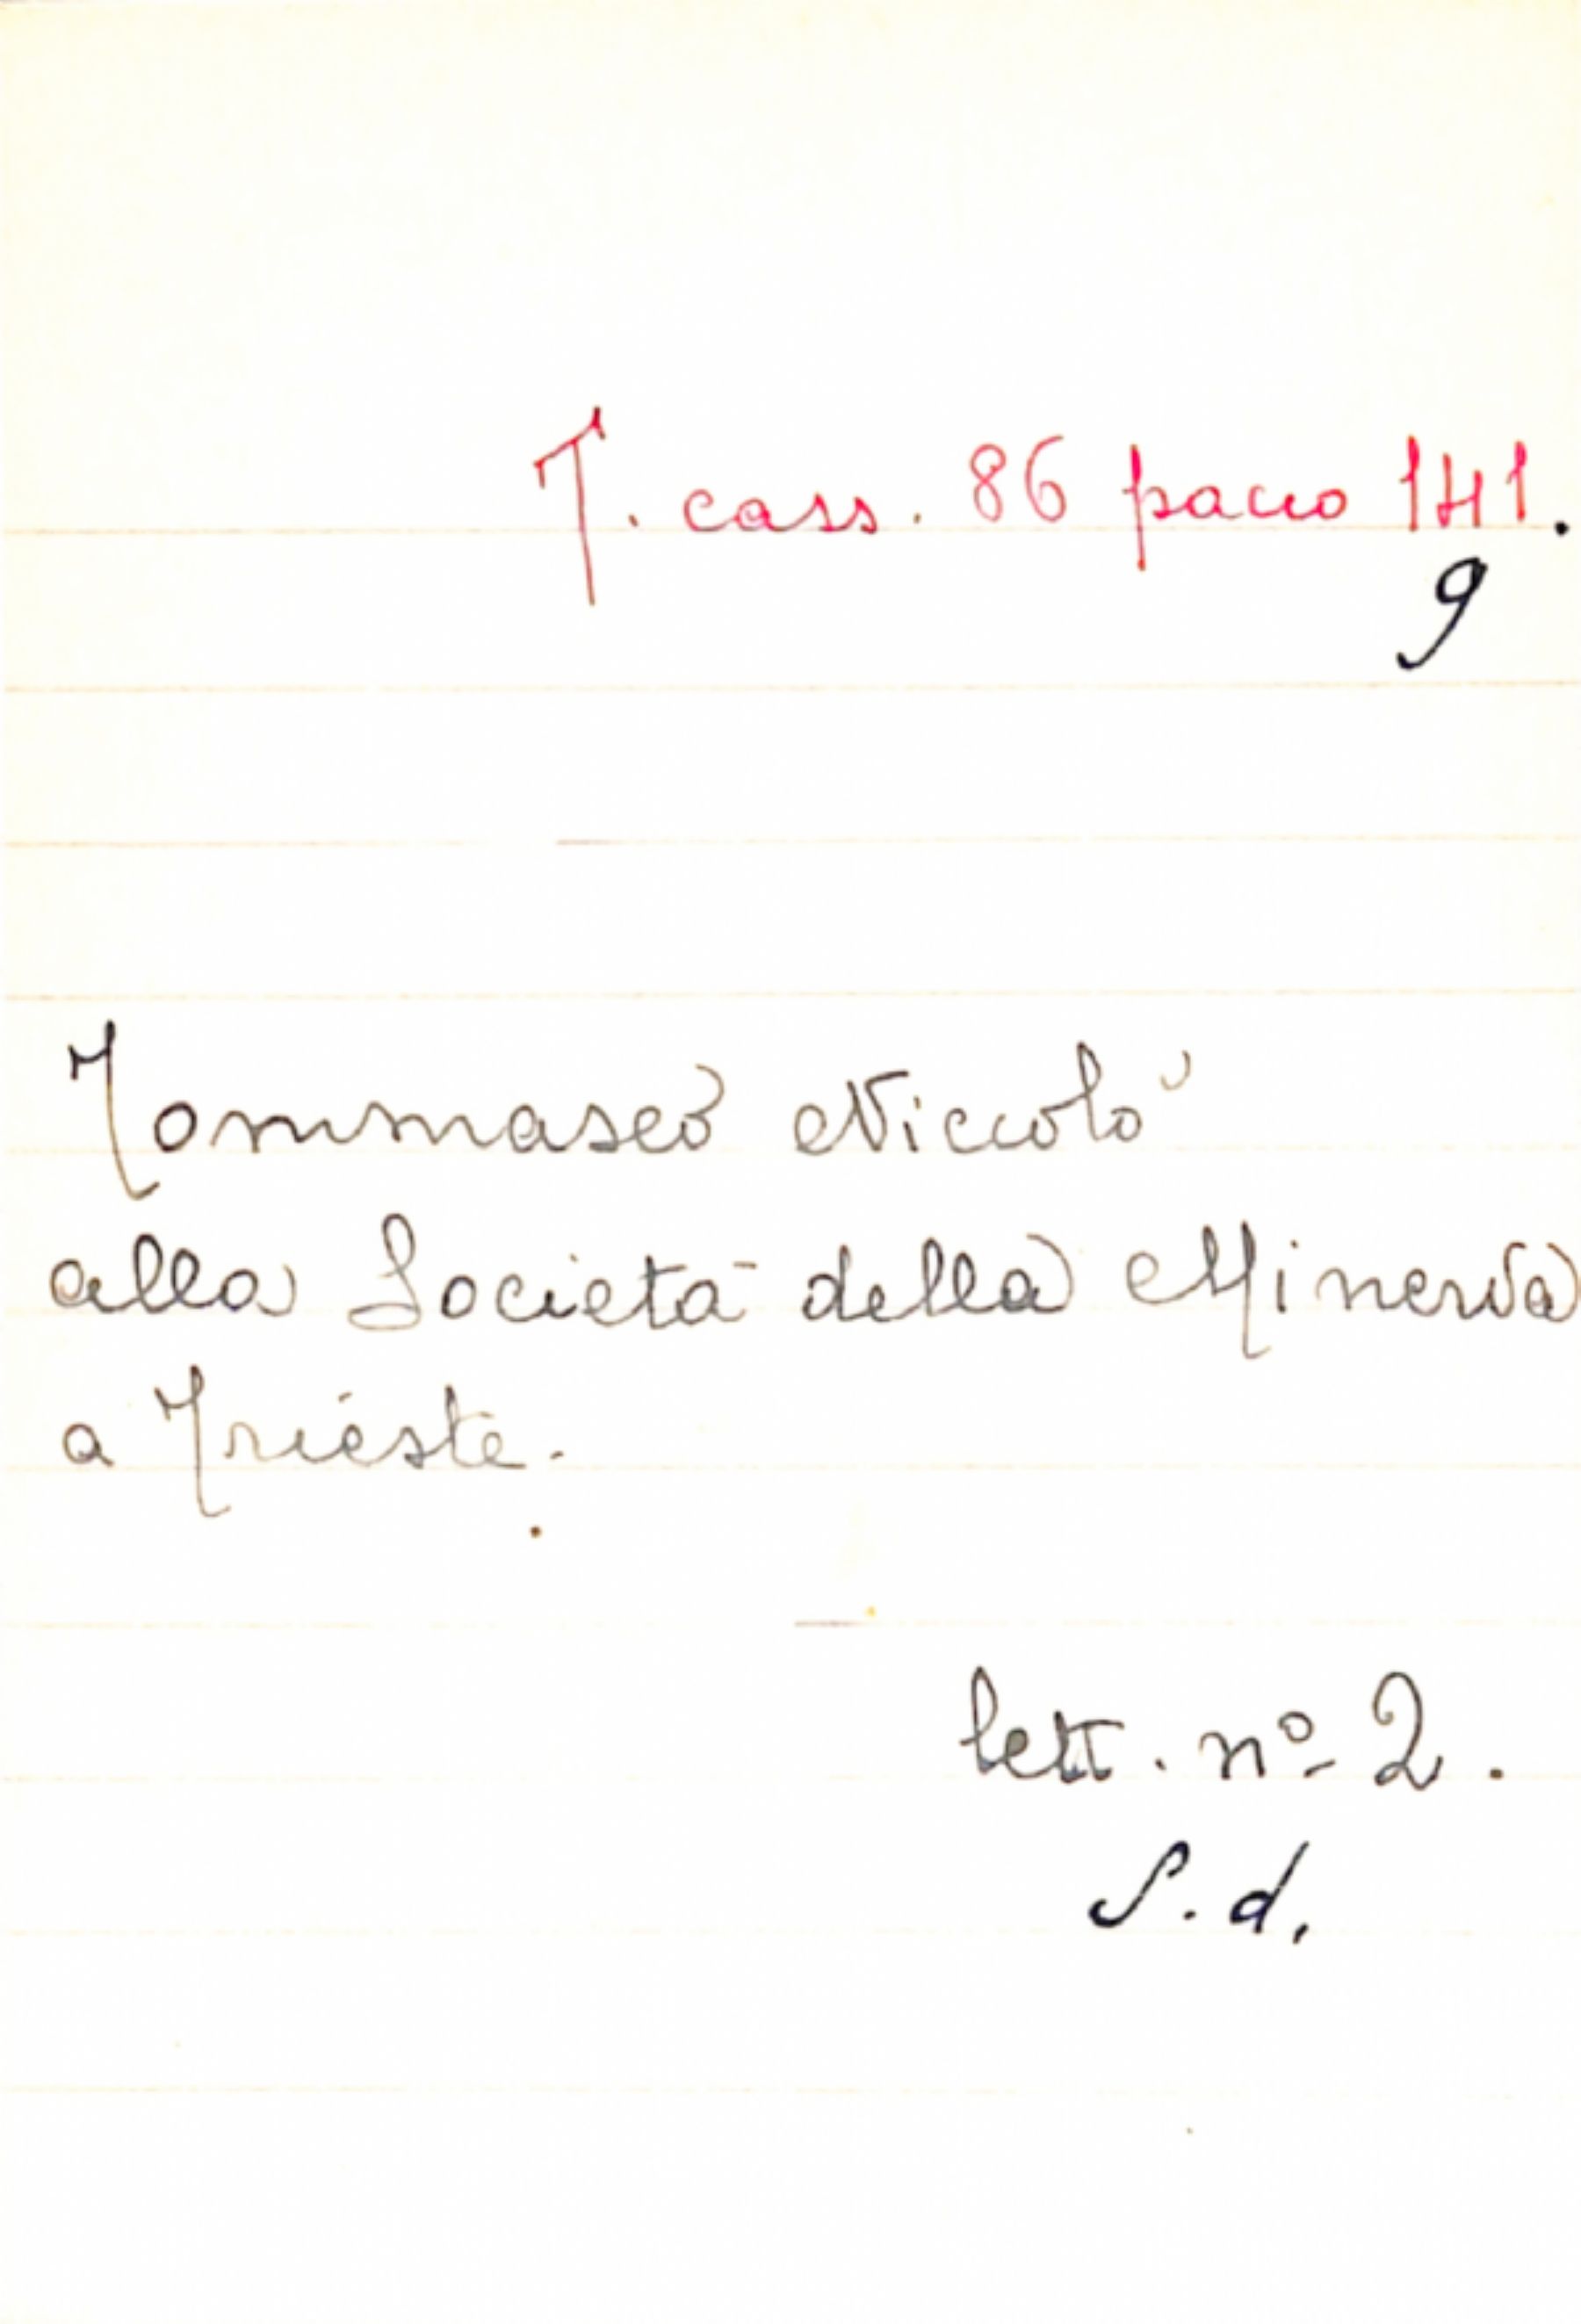 T. cass. 86 pacco 141.
9
Tommaseo Niccolò
alla Società della Minerva
a Trieste.
lett. nº 2.
S. d.